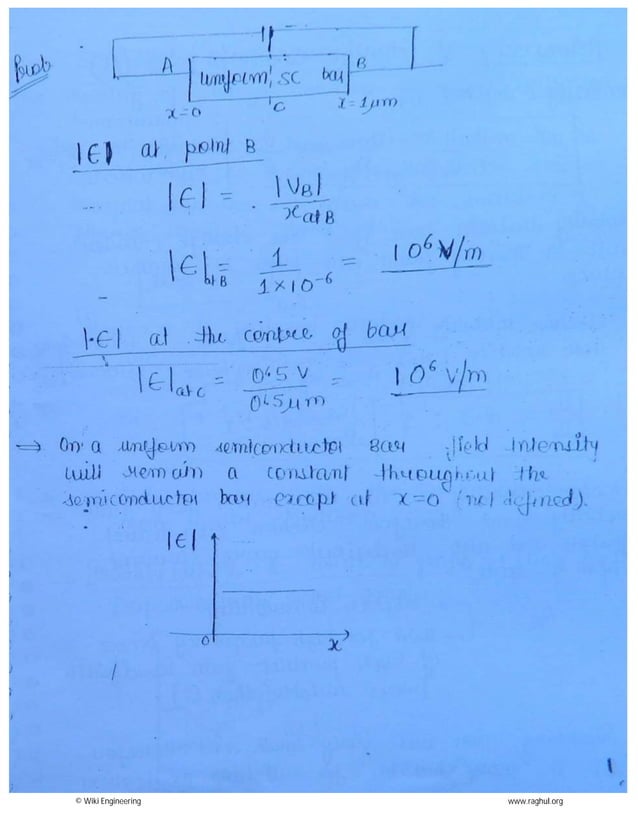 Prob
A uniform SC bar B
x=0 C x=1μm
|∈| at point B
|∈| = |V_B| / x at B
|∈| at B = 1 / 1×10⁻⁶ = 10⁶ V/m
|∈| at the centre of bar
|∈| at c = 0.5 V / 0.5μm = 10⁶ V/m
→ On a uniform semiconductor Bar field intensity
will remain a constant throughout the
semiconductor bar except at x=0 (not defined).
|∈|
0 x
1
© Wiki Engineering www.raghul.org